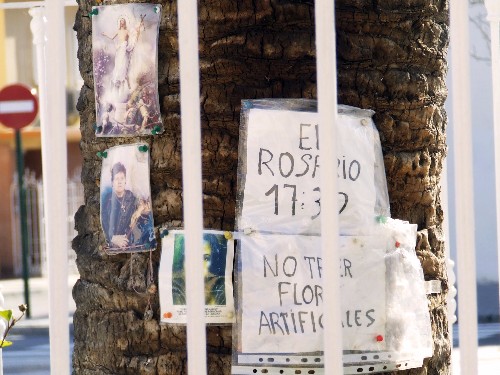 El
ROSARIO
17:30
NO TRAER
FLORES
ARTIFICIALES